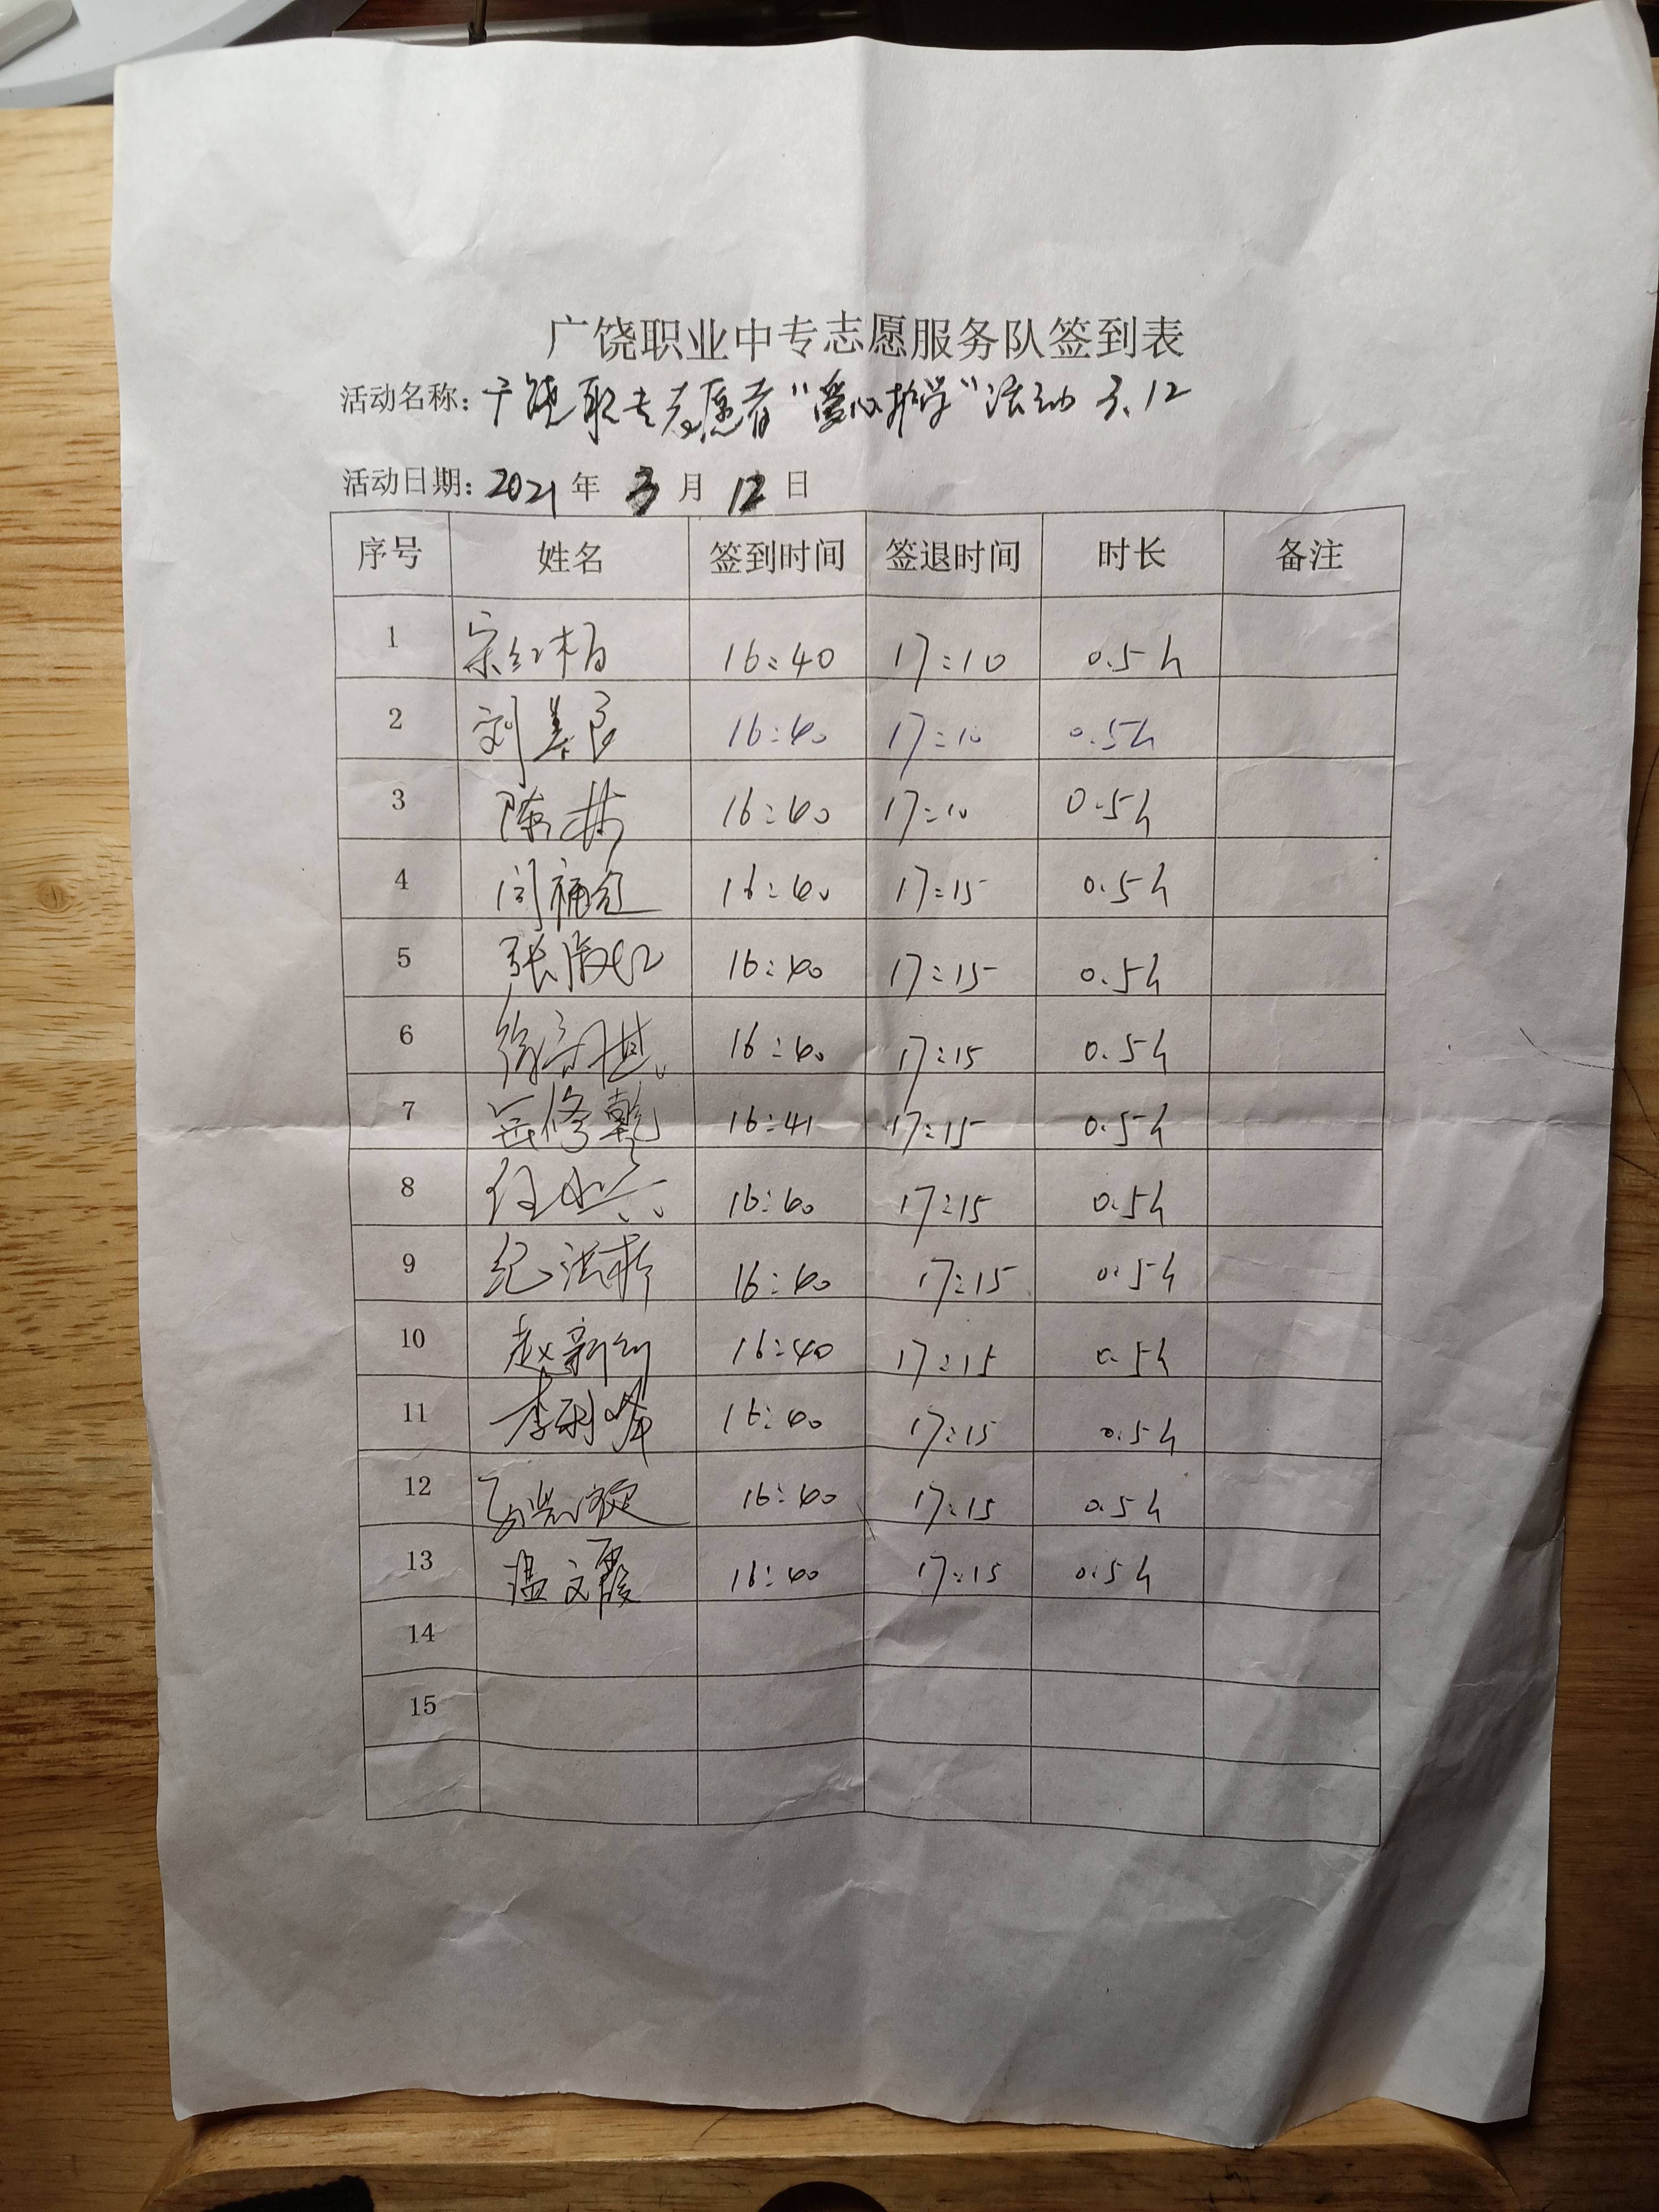 广饶职业中专志愿服务队签到表
活动名称：广饶职专志愿者“爱心护学”活动 3.12
活动日期：2021年 3月 12日
序号 姓名 签到时间 签退时间 时长 备注
1 16:40 17:10 0.5h
2 刘美良 16:40 17:10 0.5h
3 陈 16:40 17:10 0.5h
4 16:40 17:15 0.5h
5 张 16:40 17:15 0.5h
6 16:40 17:15 0.5h
7 岳修乾 16:41 17:15 0.5h
8 任 16:40 17:15 0.5h
9 纪洪 16:40 17:15 0.5h
10 赵新 16:40 17:15 0.5h
11 李利 16:40 17:15 0.5h
12 16:40 17:15 0.5h
13 温文霞 16:40 17:15 0.5h
14
15